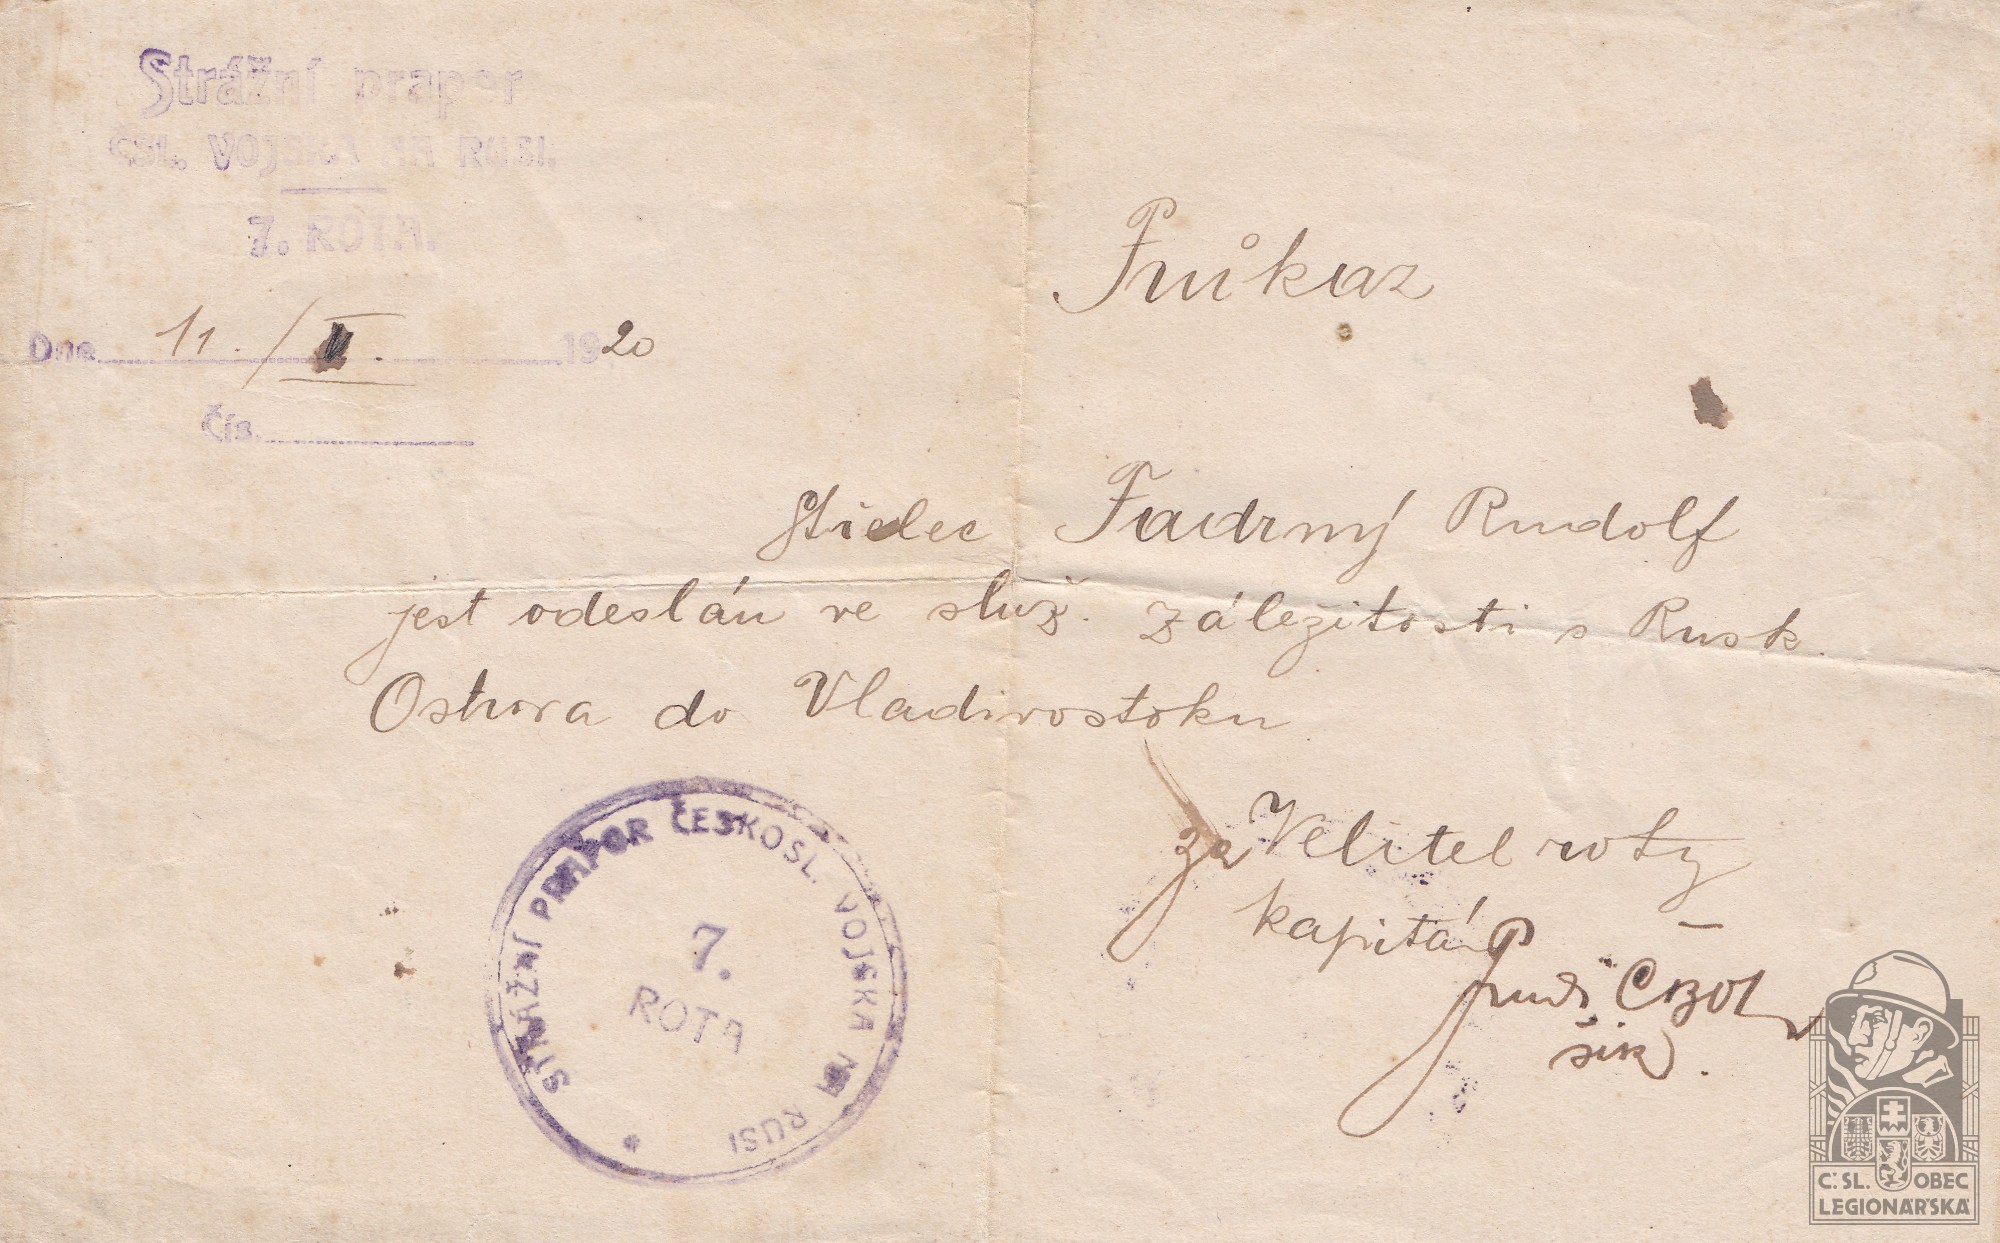 Strážní prapor
ČSL. VOJSKA NA RUSI.
7. ROTA.
Dne 11. / II. 1920
Čís.
Průkaz
Střelec Fadrný Rudolf
jest odeslán ve služ. záležitosti s Rusk.
Ostrova do Vladivostoku
za Velitel roty
kapitán
šik.
STRÁŽNÍ PRAPOR ČESKOSL. VOJSKA NA RUSI *
7.
ROTA
Č.SL. OBEC
LEGIONÁŘSKÁ